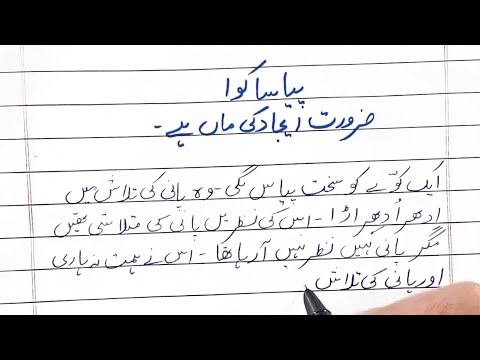 پیاسا کوا
ضرورت ایجاد کی ماں ہے۔
ایک کوّے کو سخت پیاس لگی۔ وہ پانی کی تلاش میں
ادھر اُدھر اڑا۔ اس کی نظریں پانی کی متلاشی تھیں
مگر پانی کہیں نظر نہیں آ رہا تھا۔ اس نے ہمت نہ ہاری
اور پانی کی تلاش